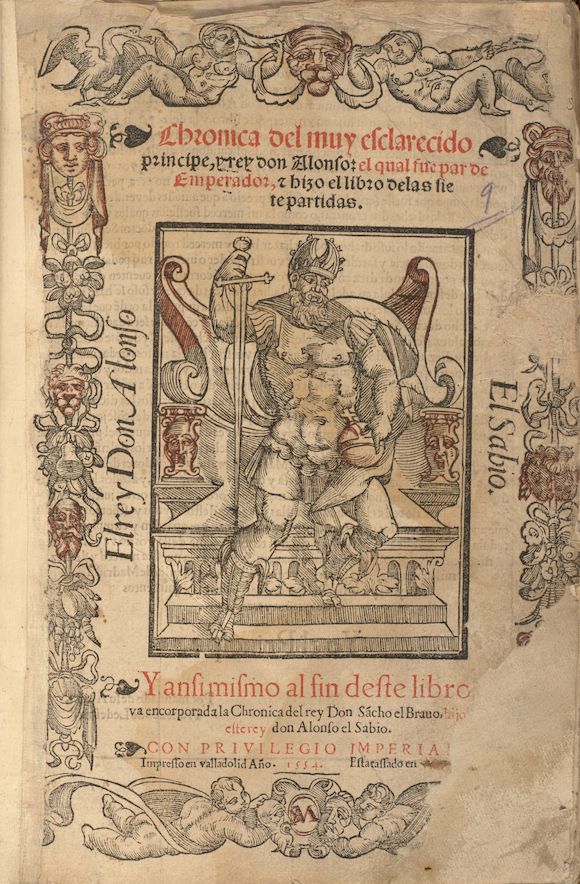 Chronica del muy esclarecido
principe, y rey don Alonso: el qual fue par de
Emperador, τ hizo el libro delas sie
te partidas.
9
El rey Don Alonso
El Sabio.
Y ansi mismo al fin deste libro
va encorporada la Chronica del rey Don Sãcho el Brauo, hijo
este rey don Alonso el Sabio.
CON PRIVILEGIO IMPERIA
Impresso en valladolid Año. 1554. Esta tassado en